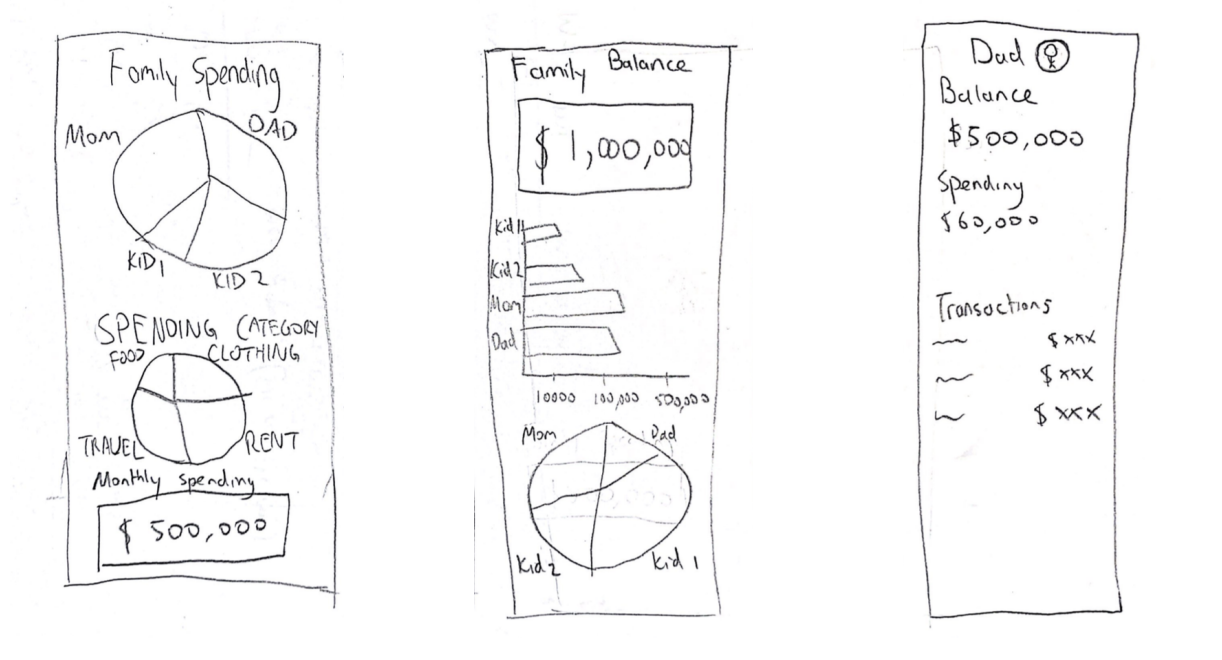 Family Spending
Mom
DAD
KID 1
KID 2
SPENDING CATEGORY
FOOD
CLOTHING
TRAVEL
RENT
Monthly spending
$ 500,000
Family Balance
$ 1,000,000
Kid 1
Kid 2
Mom
Dad
10000 100,000 500,000
Mom
Dad
Kid 2
Kid 1
Dad
Balance
$500,000
Spending
$60,000
Transactions
$ xxx
$ xxx
$ xxx